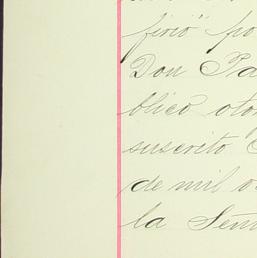 firió" po
Don Pa
blico otor
suscrito
de mil o
la Señ